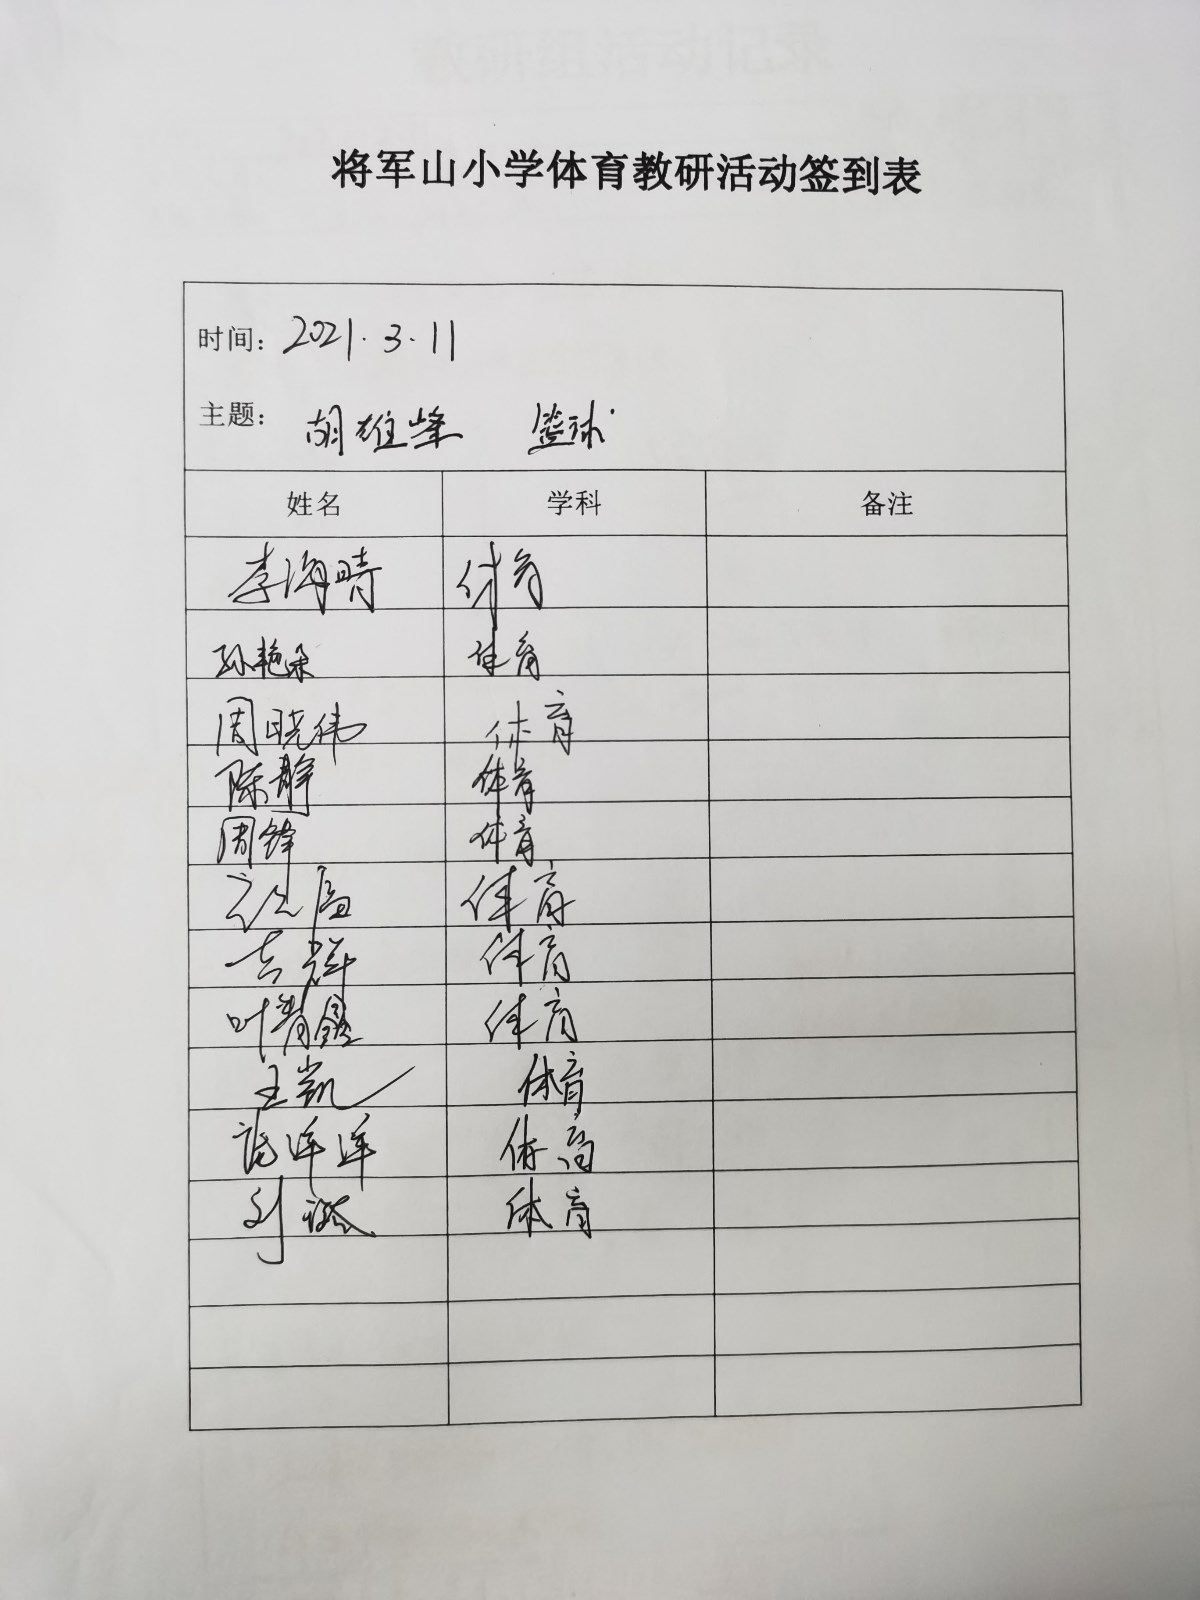 将军山小学体育教研活动签到表
时间: 2021.3.11
主题: 胡雄峰 篮球
姓名 学科 备注
李海晴 体育
孙艳朵 体育
周晓伟 体育
陈静 体育
周锋 体育
体育
吉祥 体育
叶青鑫 体育
王凯 体育
洋洋 体育
刘 体育